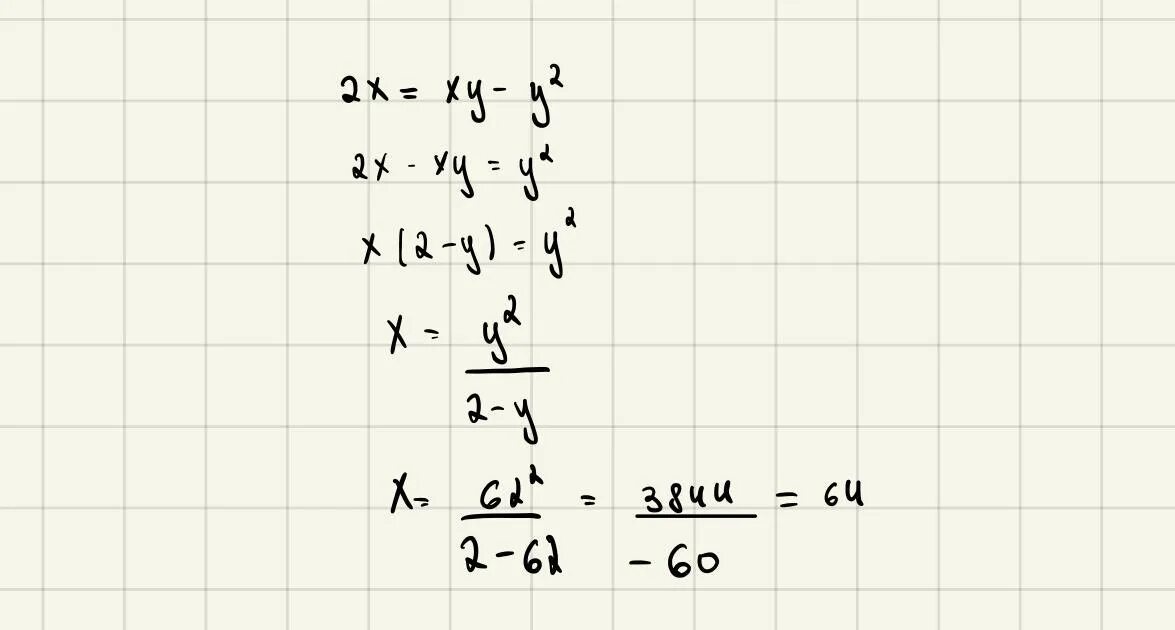 2x = xy - y²
2x - xy = y²
x(2-y) = y²
x = y²/2-y
x = 62²/2-62 = 3844/-60 = 64